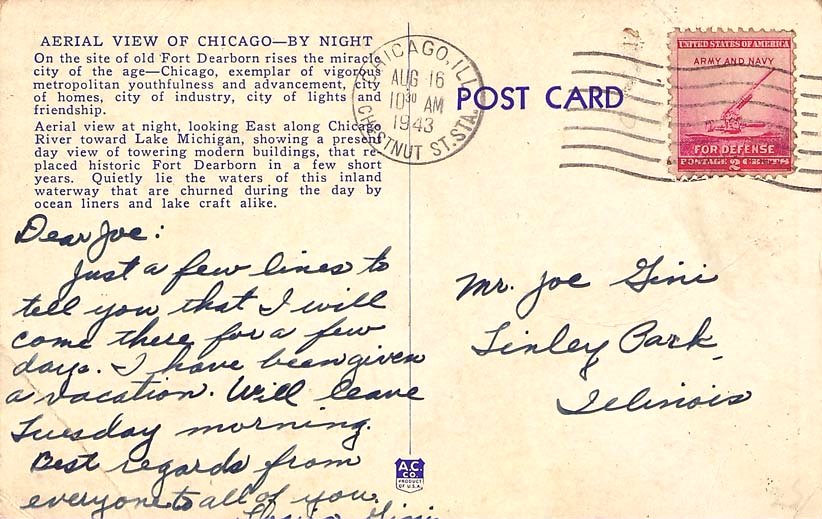 AERIAL VIEW OF CHICAGO—BY NIGHT
On the site of old Fort Dearborn rises the miracle
city of the age—Chicago, exemplar of vigorous
metropolitan youthfulness and advancement, city
of homes, city of industry, city of lights and
friendship.
Aerial view at night, looking East along Chicago
River toward Lake Michigan, showing a present
day view of towering modern buildings, that re-
placed historic Fort Dearborn in a few short
years. Quietly lie the waters of this inland
waterway that are churned during the day by
ocean liners and lake craft alike.
Dear Joe:
Just a few lines to
tell you that I will
come there for a few
days. I have been given
a vacation. Will leave
Tuesday morning.
Best regards from
everyone to all of you.
Gini
CHICAGO, ILL.
AUG 16
10 30 AM
1943
CHESTNUT ST. STA.
POST CARD
UNITED STATES OF AMERICA
ARMY AND NAVY
FOR DEFENSE
POSTAGE 2 CENTS
Mr. Joe Gini
Tinley Park,
Illinois
A.C.
CO.
PRODUCT
OF U.S.A.